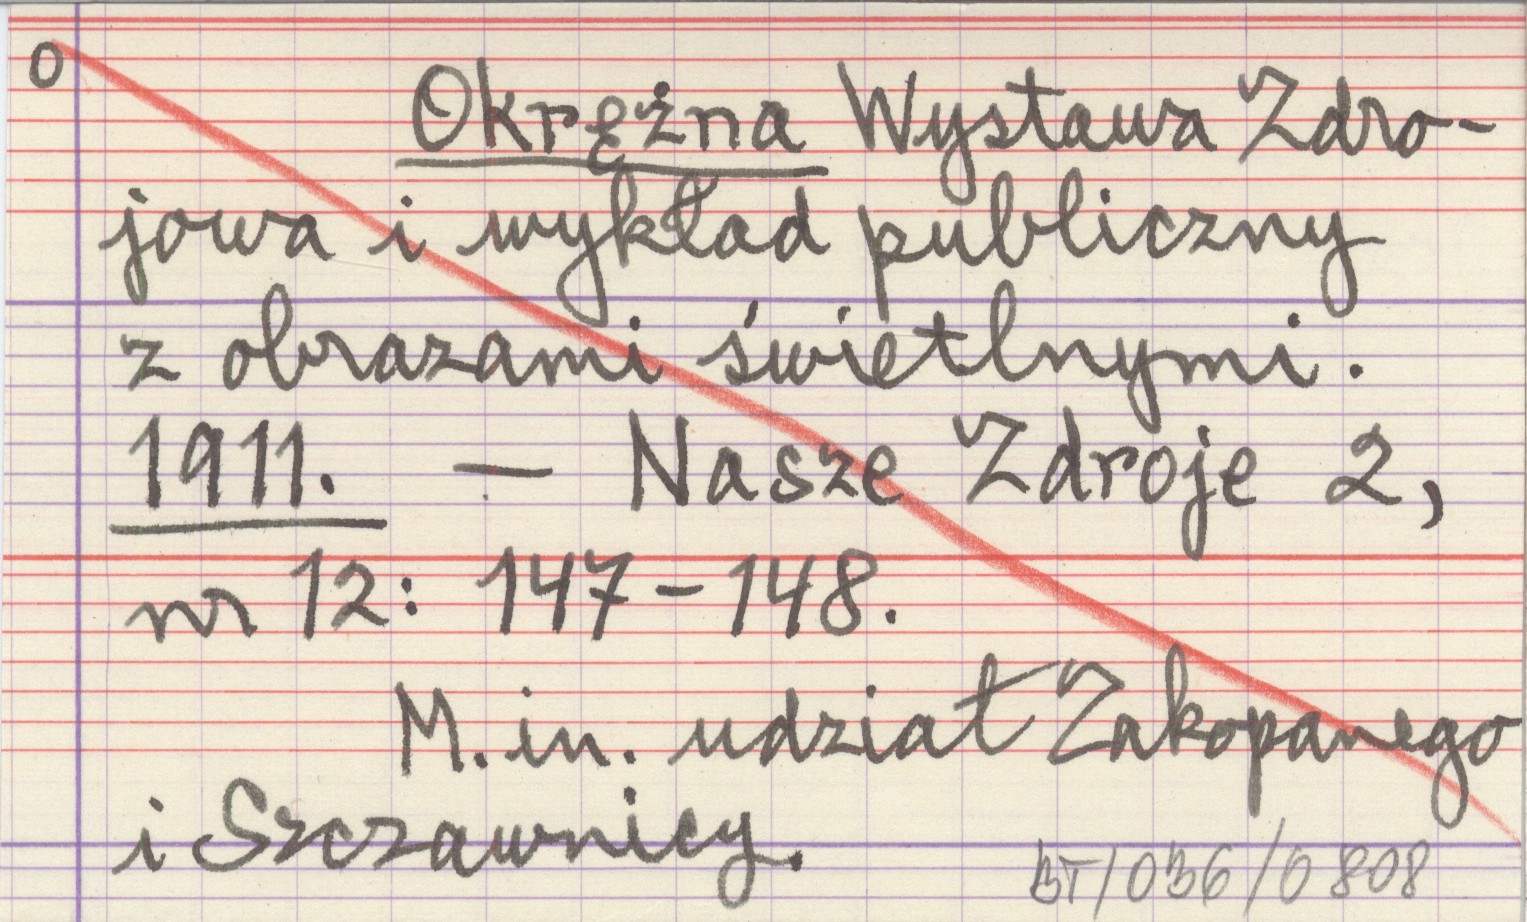 O
Okrężna Wystawa Zdro-
jowa i wykład publiczny
z obrazami świetlnymi.
1911. — Nasze Zdroje 2,
nr 12: 147-148.
M. in. udział Zakopanego
i Szczawnicy.
BT/OB6/0808